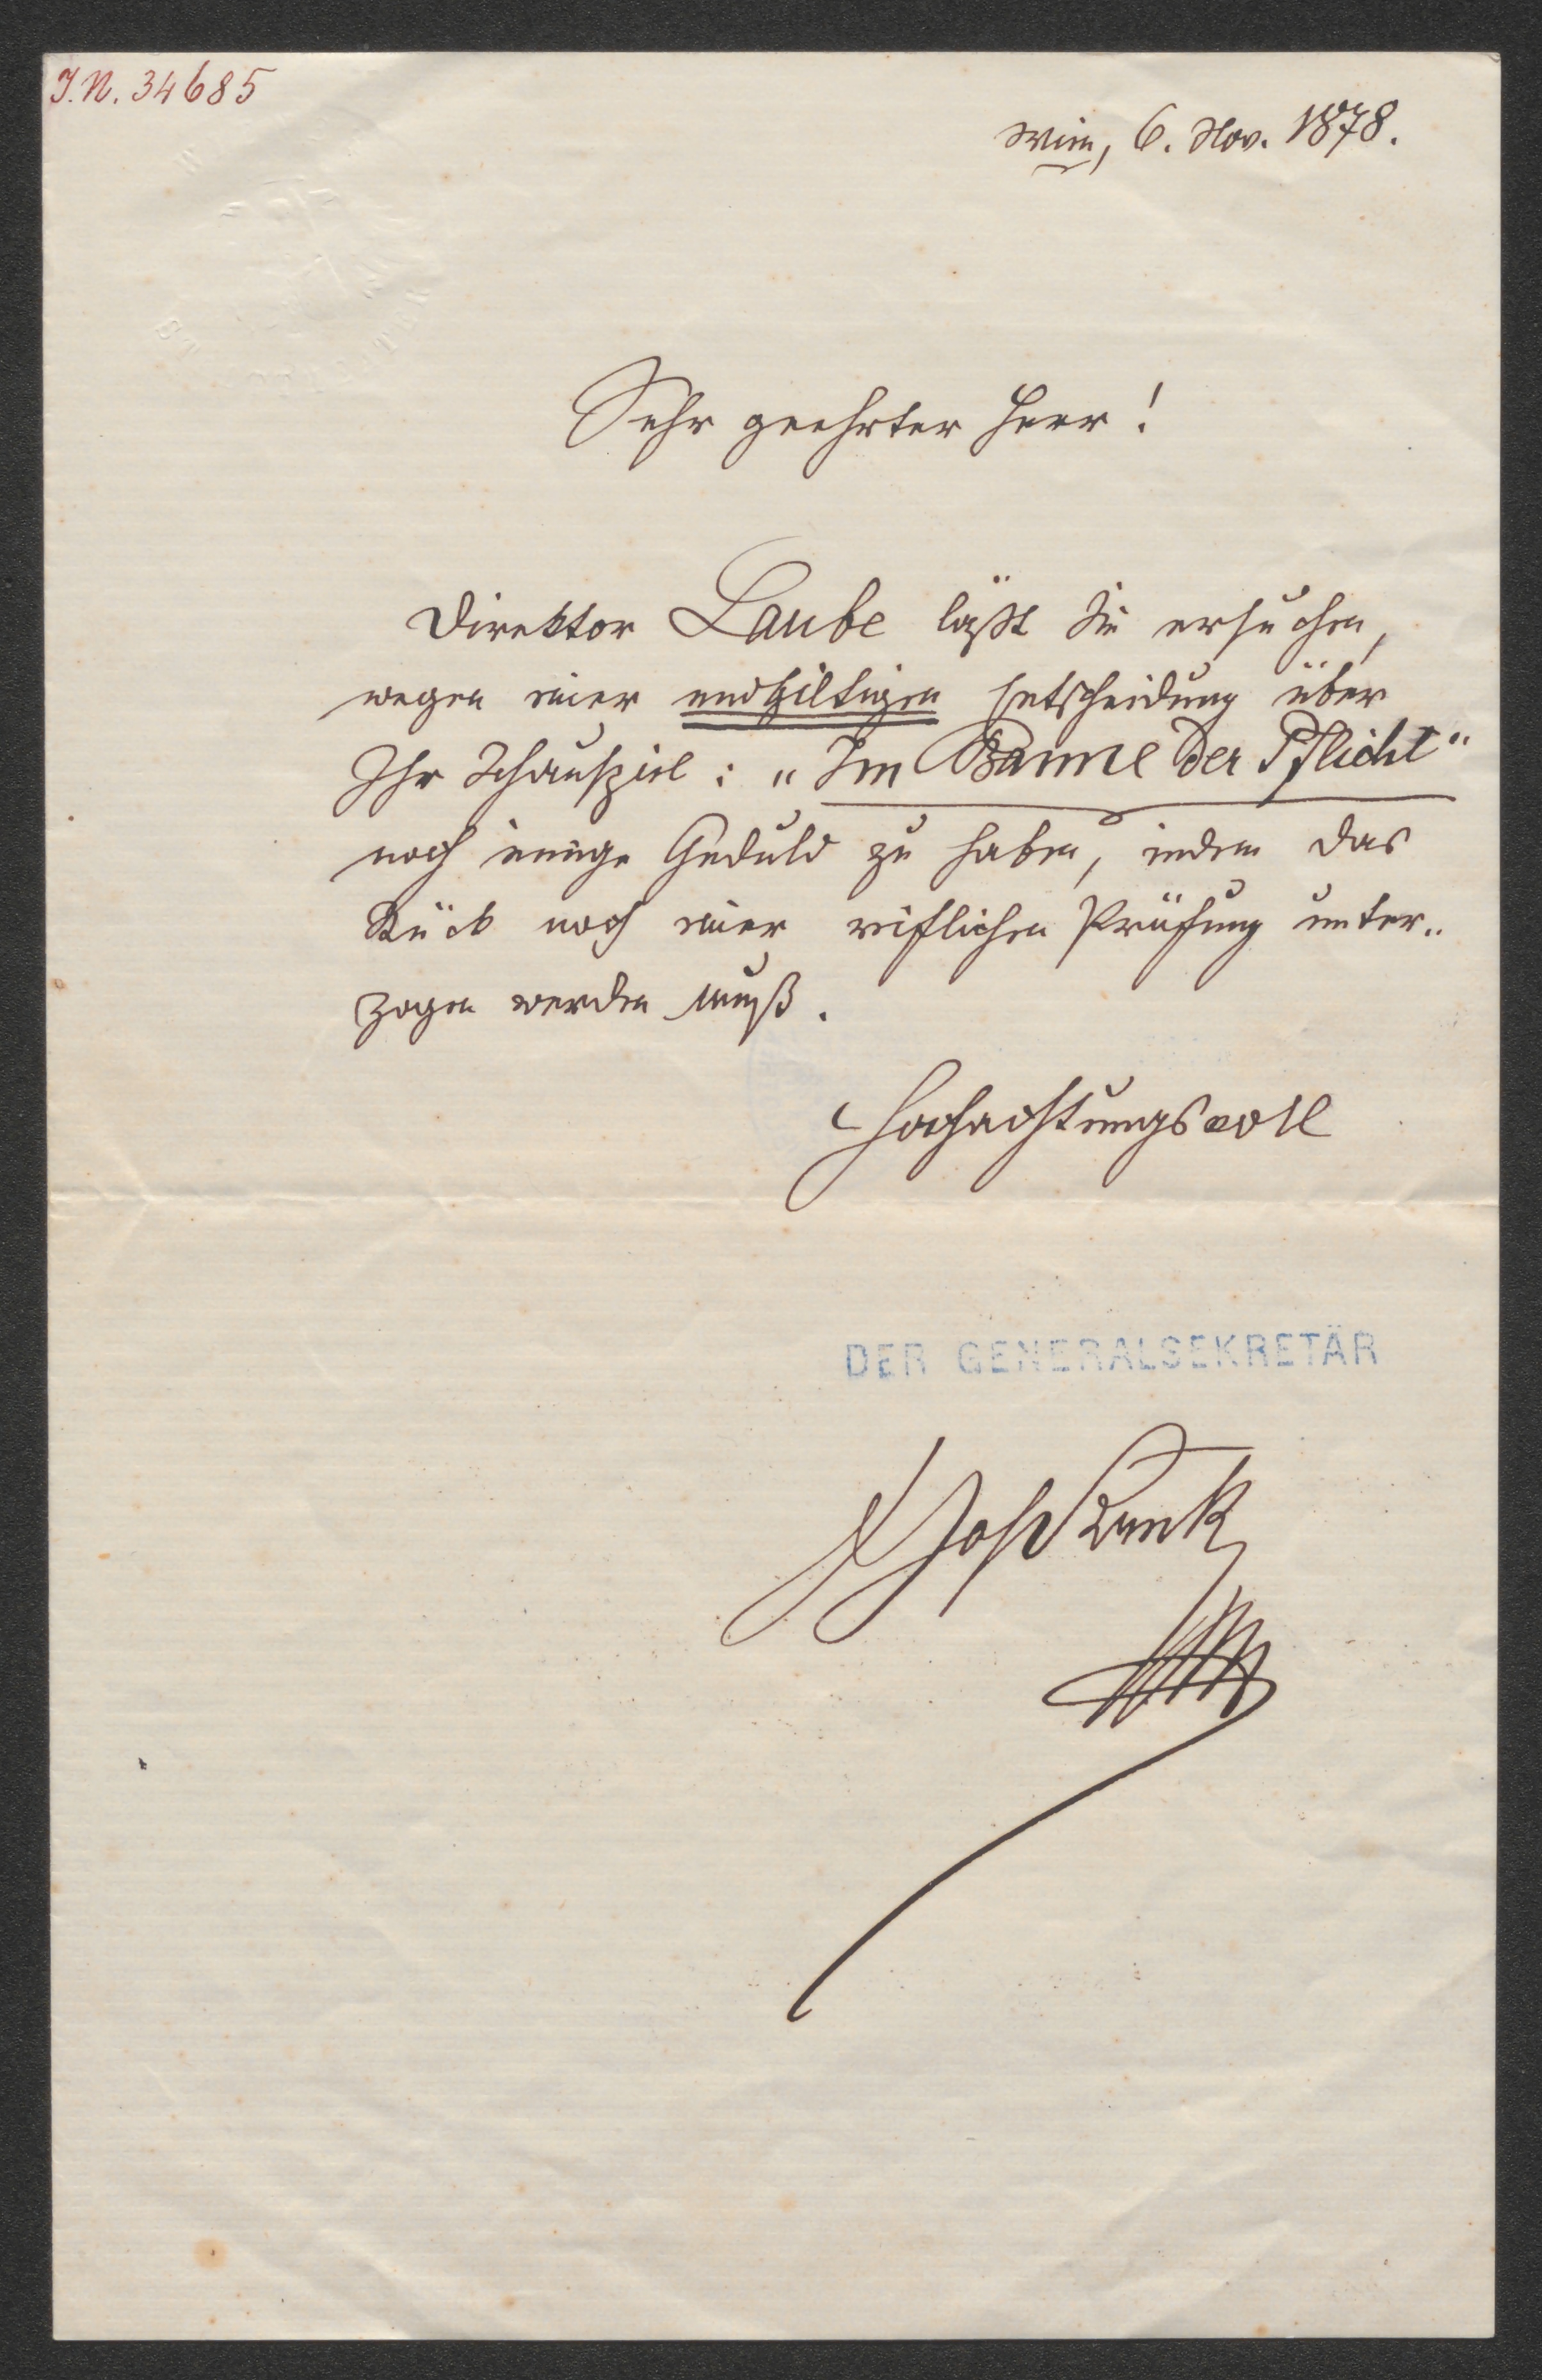 I.N. 34685
Wien, 6. Nov. 1878.
Sehr geehrter Herr!
Direktor Laube läßt Sie ersuchen,
wegen einer endgiltigen Entscheidung über
Ihr Schauspiel: „Im Banne der Pflicht“
noch einige Geduld zu haben, indem das
Stück noch einer reiflichen Prüfung unter-
zogen werden muß.
Hochachtungsvoll
DER GENERALSEKRETÄR